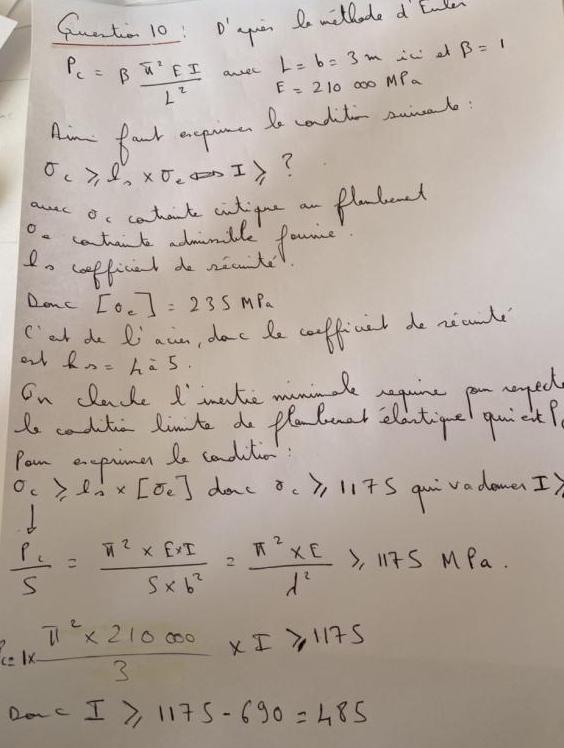 Question 10 : D'après la méthode d'Euler
Pc = β π² E I / L² avec L = b = 3 m ici et β = 1
E = 210 000 MPa
Ainsi faut exprimer la condition suivante :
σc ⩾ ks × σe ⇔ I ⩾ ?
avec σc contrainte critique au flambement
σe contrainte admissible fournie.
ks coefficient de sécurité.
Donc [σe] = 235 MPa
C'est de l'acier, donc le coefficient de sécurité
est ks = 4 à 5.
On cherche l'inertie minimale requise pour respecte
la condition limite de flambement élastique qui est Pc
Pour exprimer la condition :
σc ⩾ ks × [σe] donc σc ⩾ 1175 qui va donner I ⩾
↓
Pc / S = π² × E×I / S × b² = π² × E / λ² ⩾ 1175 MPa.
Pc = 1× π² × 210 000 / 3 × I ⩾ 1175
Donc I ⩾ 1175 - 690 = 485